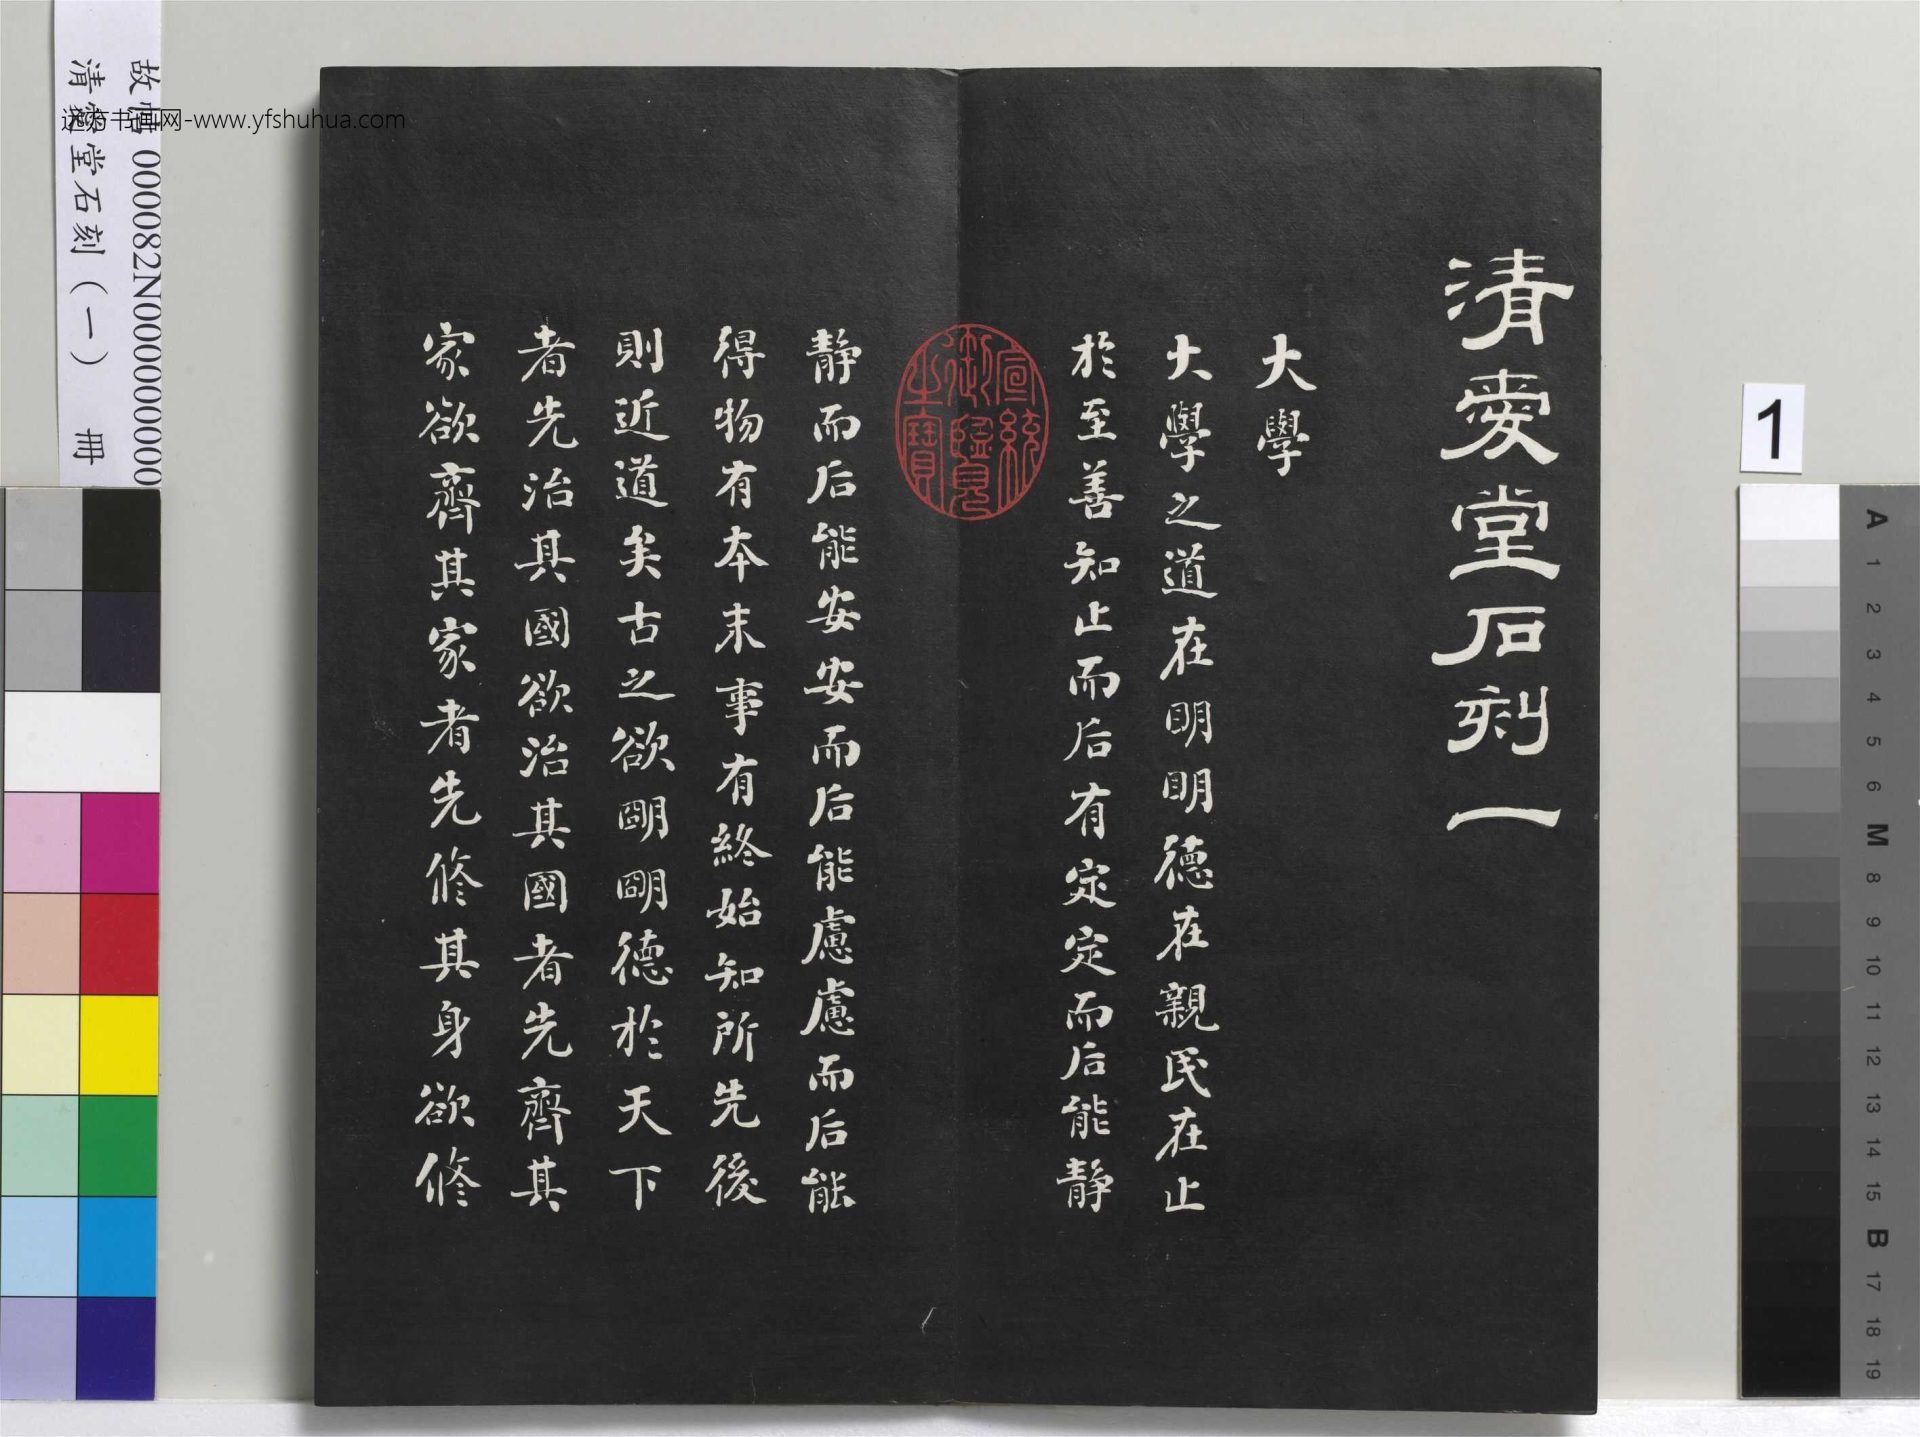 清愛堂石刻一
大學
大學之道在眀眀德在親民在止
於至善知止而后有定定而后能静
宣統御覽之寶
静而后能安安而后能慮慮而后能
得物有本末事有終始知所先後
則近道矣古之欲朙朙德於天下
者先治其國欲治其國者先齊其
家欲齊其家者先修其身欲修
故帖 000082N000000000
清愛堂石刻（一） 冊
书画网-www.yfshuhua.com
1
A 1 2 3 4 5 6 M 8 9 10 11 12 13 14 15 B 17 18 19